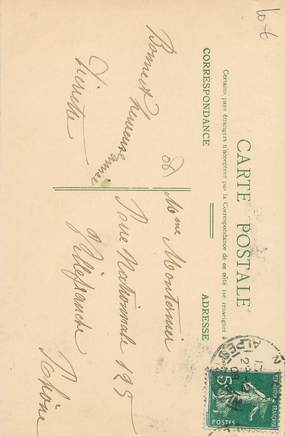 CARTE POSTALE
Certains pays étrangers n'acceptent pas la Correspondance de ce côté (se renseigner)
CORRESPONDANCE
ADRESSE
Bonne et heureuse
année
Mme Monternier
Rue Nationale 195
Villefranche
Rhône
10 €
ALPES
5
POSTES